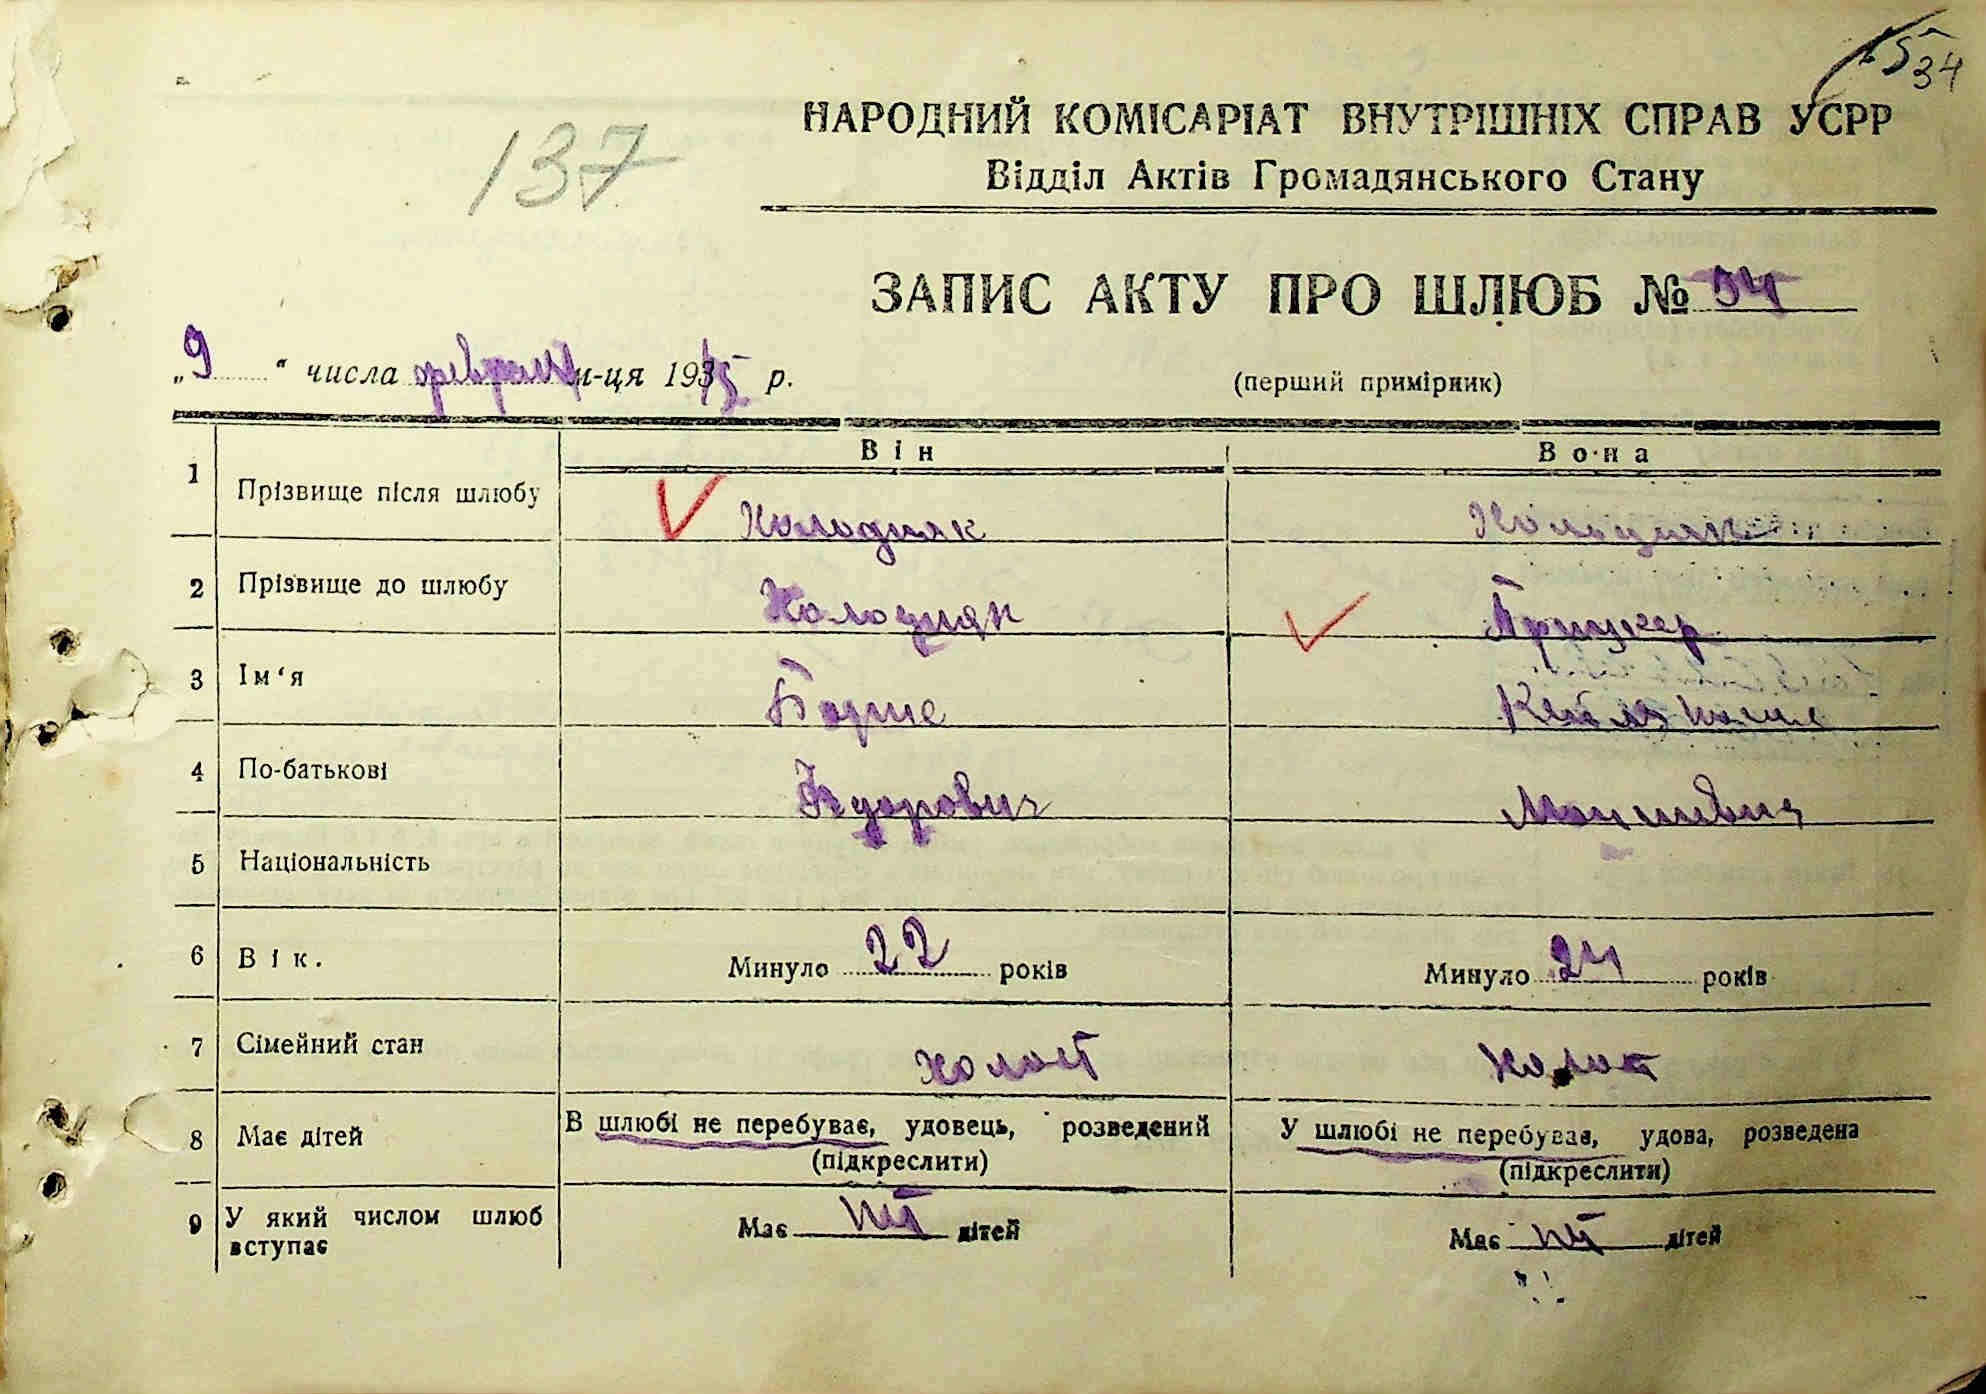 534
137
НАРОДНИЙ КОМІСАРІАТ ВНУТРІШНІХ СПРАВ УСРР
Відділ Актів Громадянського Стану
ЗАПИС АКТУ ПРО ШЛЮБ № 54
„9“ числа февраля м-ця 1935 р.
(перший примірник)
Він Вона
1 Прізвище після шлюбу Холодняк Холодняк
2 Прізвище до шлюбу Холодняк
3 Ім‘я Борис
4 По-батькові
5 Національність
6 Вік. Минуло 22 років Минуло 24 років
7 Сімейний стан холост холост
8 Має дітей В шлюбі не перебуває, удовець, розведений У шлюбі не перебуває, удова, розведена
(підкреслити) (підкреслити)
9 У який числом шлюб вступає Має нет дітей Має нет дітей